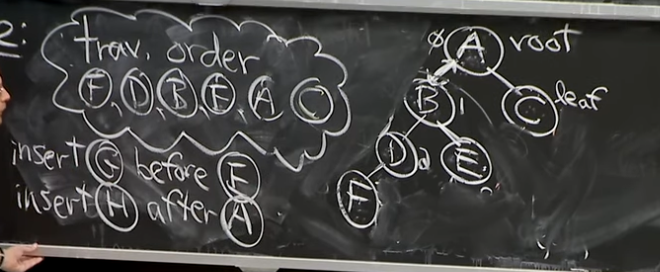 trav. order
F, D, B, E, A, C
insert G before E
insert H after A
∅ A root
B 1 C leaf
D 2 E
F